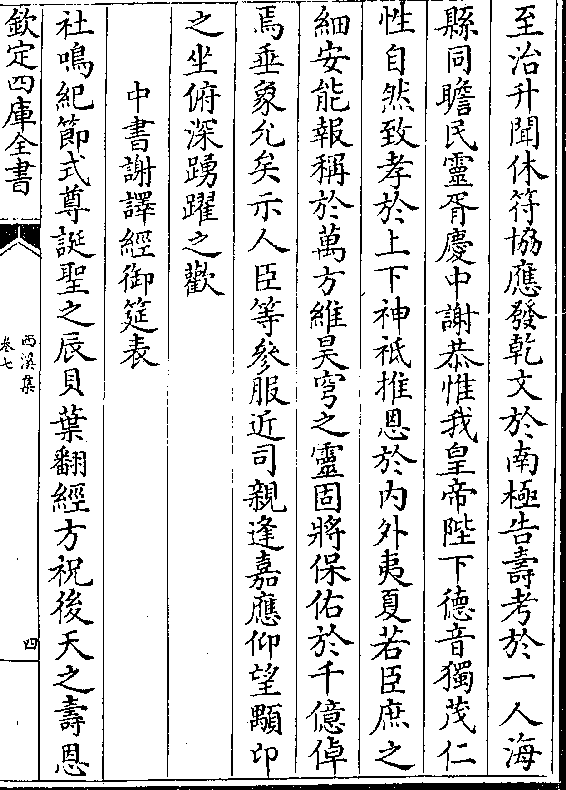 至治升聞休符協應發乾文於南極告壽考於一人海
縣同瞻民靈胥慶中謝恭惟我皇帝陛下德音獨茂仁
性自然致孝於上下神祇推恩於內外夷夏若臣庶之
細安能報稱於萬方維昊穹之靈固將保佑於千億倬
焉垂象允矣示人臣等參服近司親逢嘉應仰望顒卬
之坐俯深踴躍之歡
中書謝譯經御筵表
社鳴紀節式尊誕聖之辰貝葉翻經方祝後天之壽恩
欽定四庫全書
西溪集
卷七
四